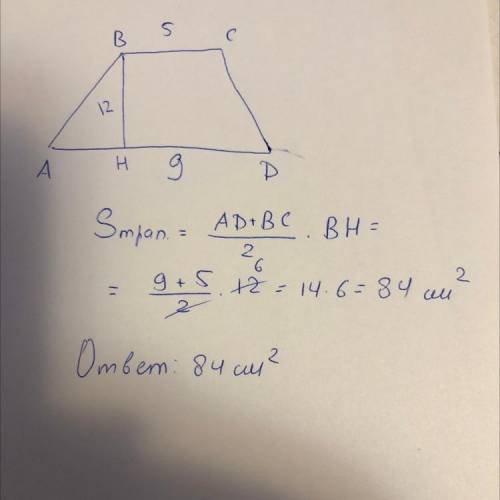 B 5 C
12
A H 9 D
Sтрап. = AD+BC/2 · BH =
= 9+5/2 · 12 6 = 14·6 = 84 см²
Ответ: 84 см²